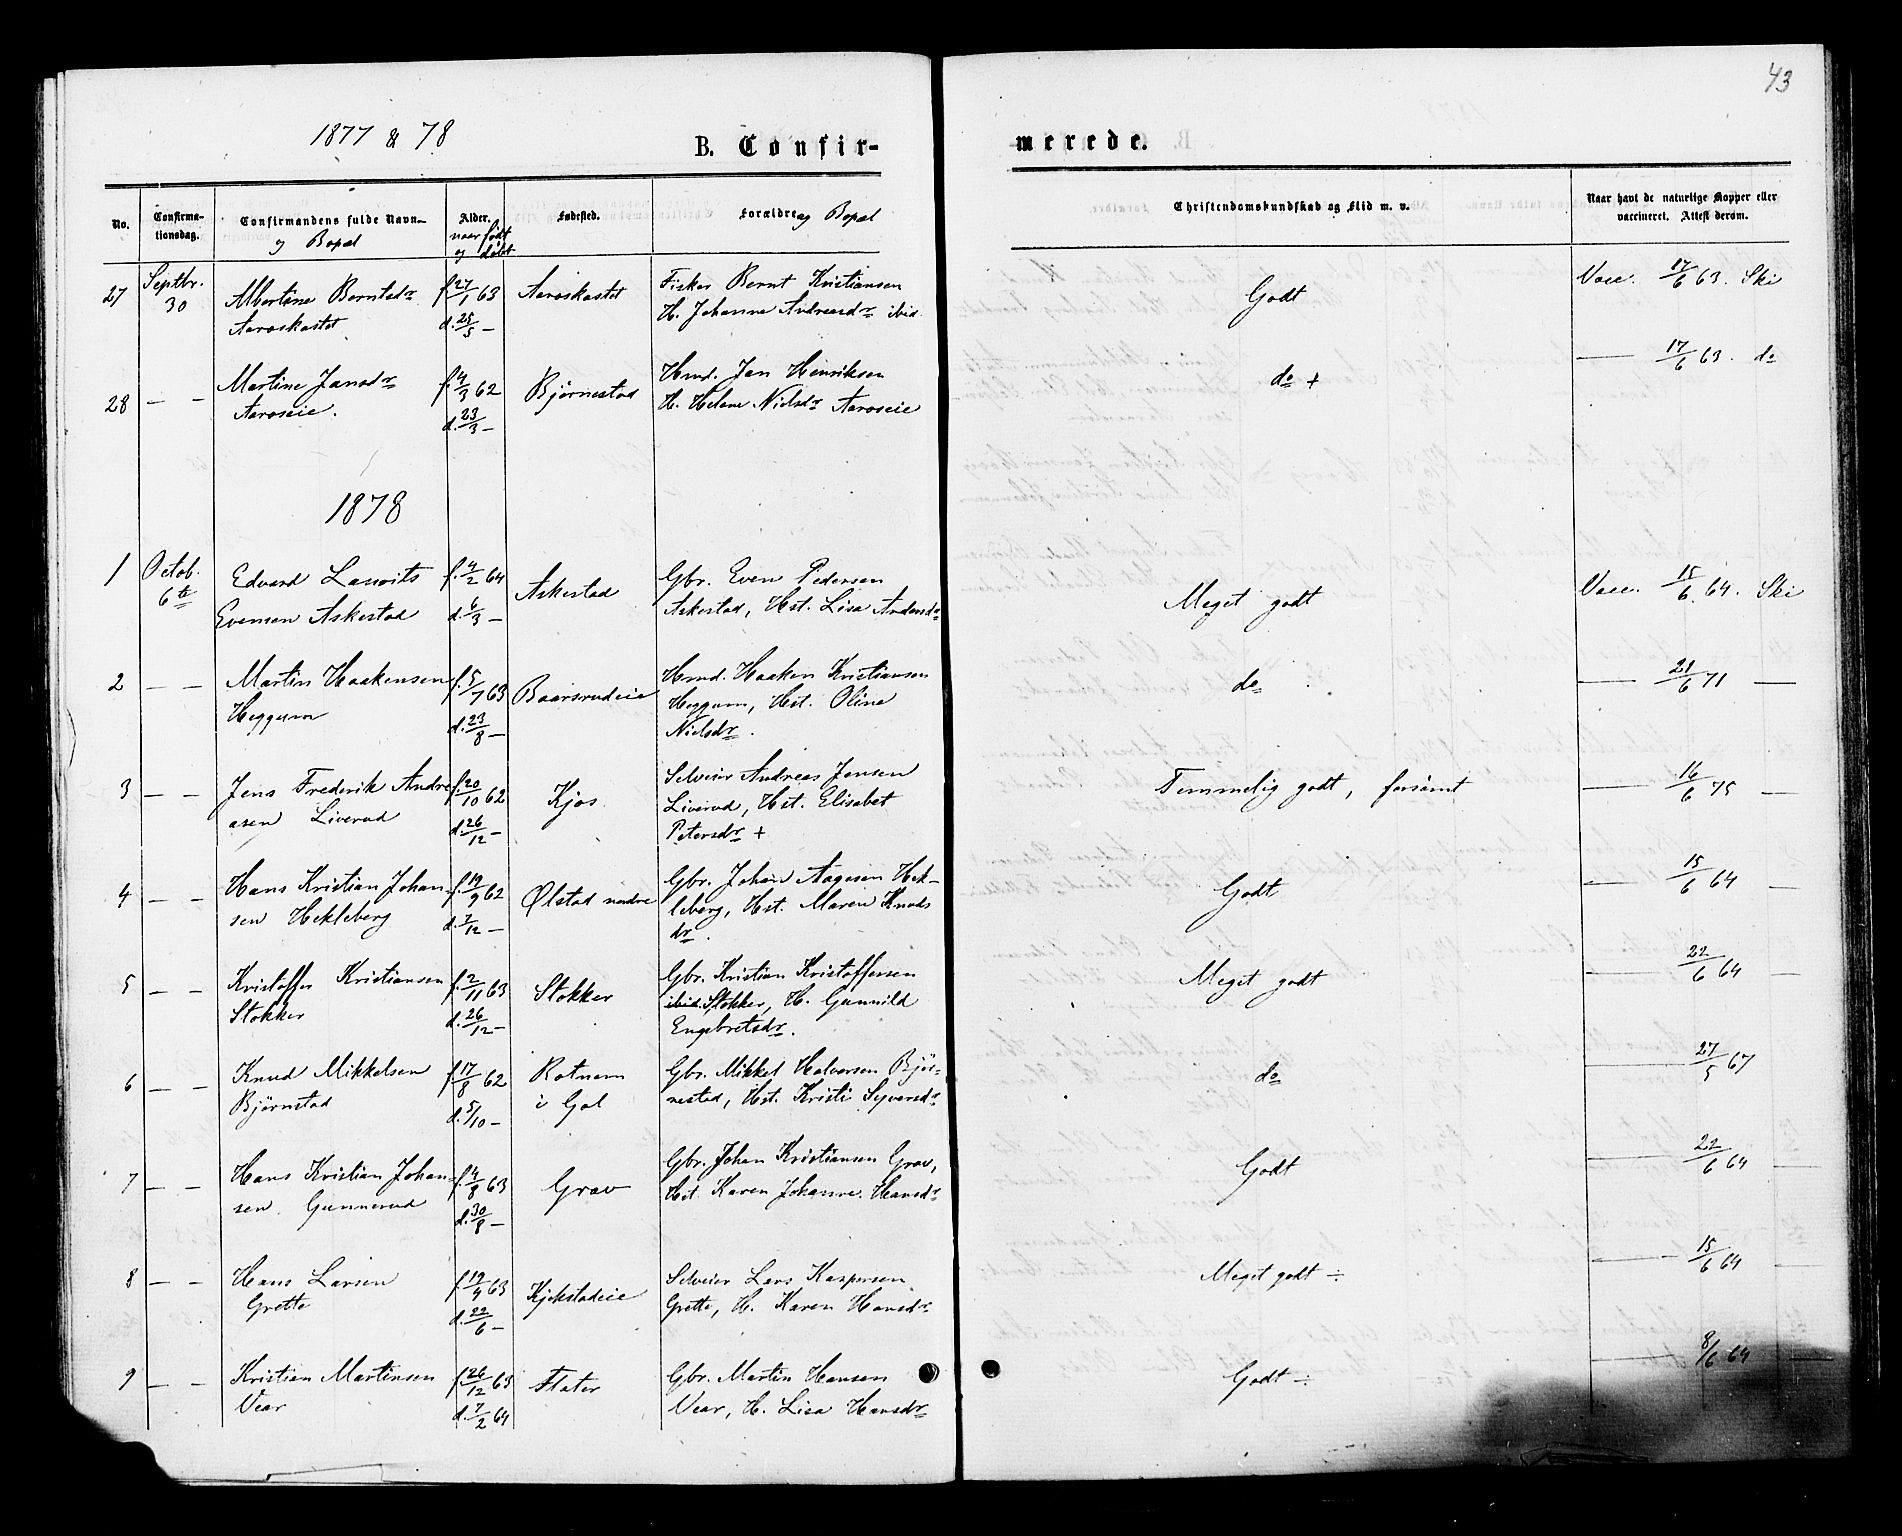 43
1877 & 78
B. Confir-
merede.
No.
Confirma-
tionsdag.
Confirmandens fulde Navn
og Bopæl
Alder.
naar født
og døbt
Fødested.
Forældre og Bopæl
Christendomskundskab og Flid m. v.
Naar havt de naturlige Kopper eller
vaccineret. Attest derom.
27 Septbr. 30 Albertine Berntsdr Aaroskastet f. 27/1 63 d. 25/5 — Aaroskastet Fisker Bernt Kristiansen
H. Johanne Andreasdr ibid. Godt Vacc. 17/6 63. Ski
28 — — Martine Jansdr Aaroseie. f. 4/3 62 d. 23/3 — Bjørnestad Hmd. Jan Henriksen
H. Helene Nielsdr Aaroseie do + — 17/6 63. do
1878
1 Octob. 6te Edvard Lauvits
Evensen Askestad f. 4/2 64 d. 6/3 — Askestad Gbr. Even Pedersen
Askestad, Hst. Lisa Andersdr Meget godt Vacc. 15/6 64. Ski
2 — — Martin Haakensen
Heggum f. 5/7 63 d. 23/8 — Baarsrudeie Hmd. Haaken Kristiansen
Heggum, Hst. Oline
Nielsdr. do — 21/6 71 —
3 — — Jens Frederik Andre
asen Liverud f. 20/10 62 d. 26/12 — Kjos Selveier Andreas Jensen
Liverud, Hst. Elisabet
Petersdr + Temmelig godt, forsømt 16/6 75 —
4 — — Hans Kristian Johan
sen Hekleberg f. 19/9 62 d. 7/12 — Ølstad nordre Gbr. Johan Aagesen Hek-
leberg, Hst. Maren Knuds
dr. Godt — 15/6 64 —
5 — — Kristoffer Kristiansen
Stokker f. 2/11 63 d. 26/12 — Stokker Gbr. Kristian Kristoffersen
ibid. Stokker, H. Gunnild
Engebretsdr. Meget godt — 22/6 64 —
6 — — Knud Mikkelsen
Bjørnstad f. 17/8 62 d. 5/10 — Rotnem
i Gol Gbr. Mikkel Halvorsen Bjør-
nestad, Hst. Kristi Syversdr do — 27/5 67
7 — — Hans Kristian Johan-
sen Gunnerud f. 4/8 63 d. 30/8 — Grav Gbr. Johan Kristiansen Grav,
Hst. Karen Johanne Hansdr Godt — 22/6 64 —
8 — — Hans Larsen
Grette f. 19/4 63 d. 22/6 — Kjekstadeie Selveier Lars Kaspersen
Grette, H. Karen Hansdr Meget godt ÷ — 15/6 64 —
9 — — Kristian Martinsen
Vear f. 26/12 63 d. 7/2 64 Flater Gbr. Martin Hansen
Vear, H. Lisa Hansdr Godt ÷ — 8/6 64 —